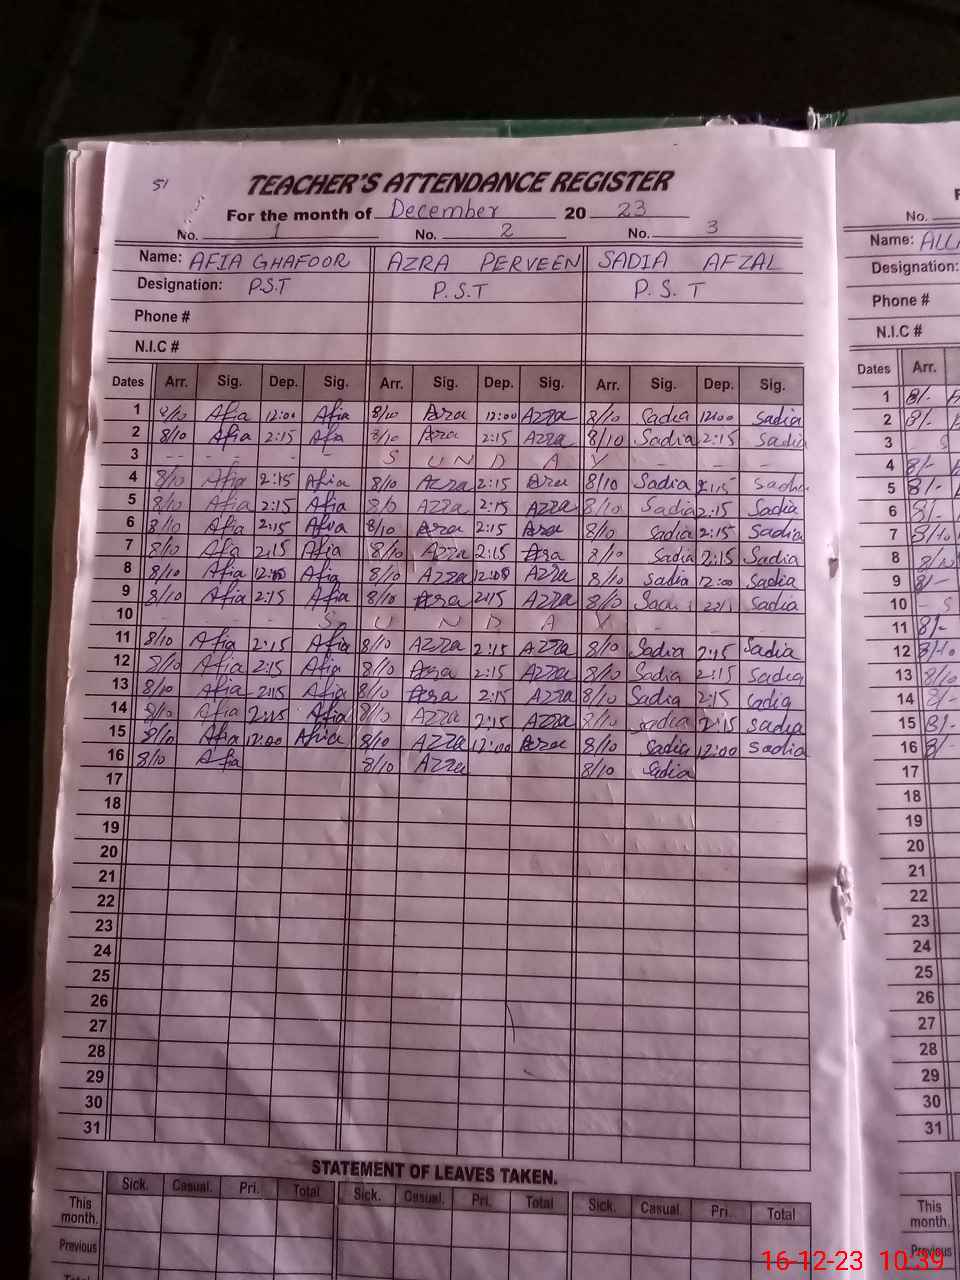 51
TEACHER'S ATTENDANCE REGISTER
For the month of December 20 23
No. 1 No. 2 No. 3
Name: AFIA GHAFOOR AZRA PERVEEN SADIA AFZAL
Designation: P.S.T P.S.T P.S.T
Phone #
N.I.C #
Dates Arr. Sig. Dep. Sig. Arr. Sig. Dep. Sig. Arr. Sig. Dep. Sig.
1 8/10 Afia 12:00 Afia 8/10 Azra 12:00 Azra 8/10 Sadia 12:00 Sadia
2 8/10 Afia 2:15 Afia 8/10 Azra 2:15 Azra 8/10 Sadia 2:15 Sadia
3 - - - - - S U N D A Y - - -
4 8/10 Afia 2:15 Afia 8/10 Azra 2:15 Azra 8/10 Sadia 2:15 Sadia
5 8/10 Afia 2:15 Afia 8/10 Azra 2:15 Azra 8/10 Sadia 2:15 Sadia
6 8/10 Afia 2:15 Afia 8/10 Azra 2:15 Azra 8/10 Sadia 2:15 Sadia
7 8/10 Afia 2:15 Afia 8/10 Azra 2:15 Azra 8/10 Sadia 2:15 Sadia
8 8/10 Afia 12:00 Afia 8/10 Azra 12:00 Azra 8/10 Sadia 12:00 Sadia
9 8/10 Afia 2:15 Afia 8/10 Azra 2:15 Azra 8/10 Sadia
10 - - - S U N D A Y - - -
11 8/10 Afia 2:15 Afia 8/10 Azra 2:15 Azra 8/10 Sadia 2:15 Sadia
12 8/10 Afia 2:15 Afia 8/10 Azra 2:15 Azra 8/10 Sadia 2:15 Sadia
13 8/10 Afia 2:15 Afia 8/10 Azra 2:15 Azra 8/10 Sadia 2:15 Sadia
14 8/10 Afia 2:15 Afia 8/10 Azra 2:15 Azra 8/10 Sadia 2:15 Sadia
15 8/10 Afia 12:00 Afia 8/10 Azra 12:00 Azra 8/10 Sadia 12:00 Sadia
16 8/10 Afia 8/10 Azra 8/10 Sadia
17
18
19
20
21
22
23
24
25
26
27
28
29
30
31
STATEMENT OF LEAVES TAKEN.
Sick. Casual. Pri. Total Sick. Casual. Pri. Total Sick. Casual. Pri. Total
This month.
Previous
Total
No.
Name: ALLA
Designation:
Phone #
N.I.C #
Dates Arr.
1 8/-
2 8/-
3 - S
4 8/-
5 8/-
6 8/-
7 8/10
8 8/10
9 8/-
10 - S
11 8/-
12 8/10
13 8/10
14 8/-
15 8/-
16 8/-
17
18
19
20
21
22
23
24
25
26
27
28
29
30
31
This month.
Previous
16-12-23 10:39